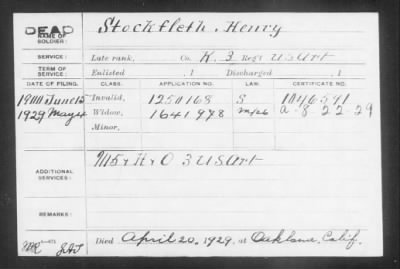 DEAD
NAME OF
SOLDIER:
Stockfleth, Henry
SERVICE:
Late rank, Co. K. 3 Reg't U S Art
TERM OF
SERVICE:
Enlisted , 1 Discharged , 1
DATE OF FILING. CLASS. APPLICATION NO. LAW. CERTIFICATE NO.
1900 June 12 Invalid, 1250168 S 1046591
1929 May 4 Widow, 1641978 a-8-22-29
Minor,
ADDITIONAL
SERVICES:
M 5 & K & O 3 U S Art
REMARKS:
Died April 20, 1929, at Oakland, Calif.